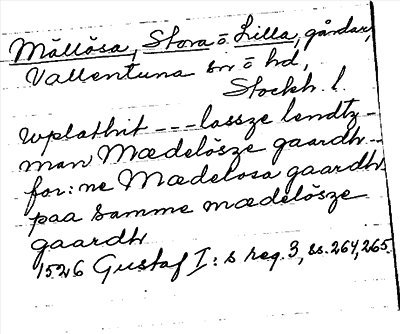 Mällösa, Stora o. Lilla, gårdar,
Vallentuna sn o hd,
Stockh. l.
wplathit --- lassze lendtz-
man Mædelösze gaardh --
for: ne Mædelosa gaardh
paa samme mædelösze
gaardh
1526 Gustaf I: s reg. 3, ss. 264, 265.